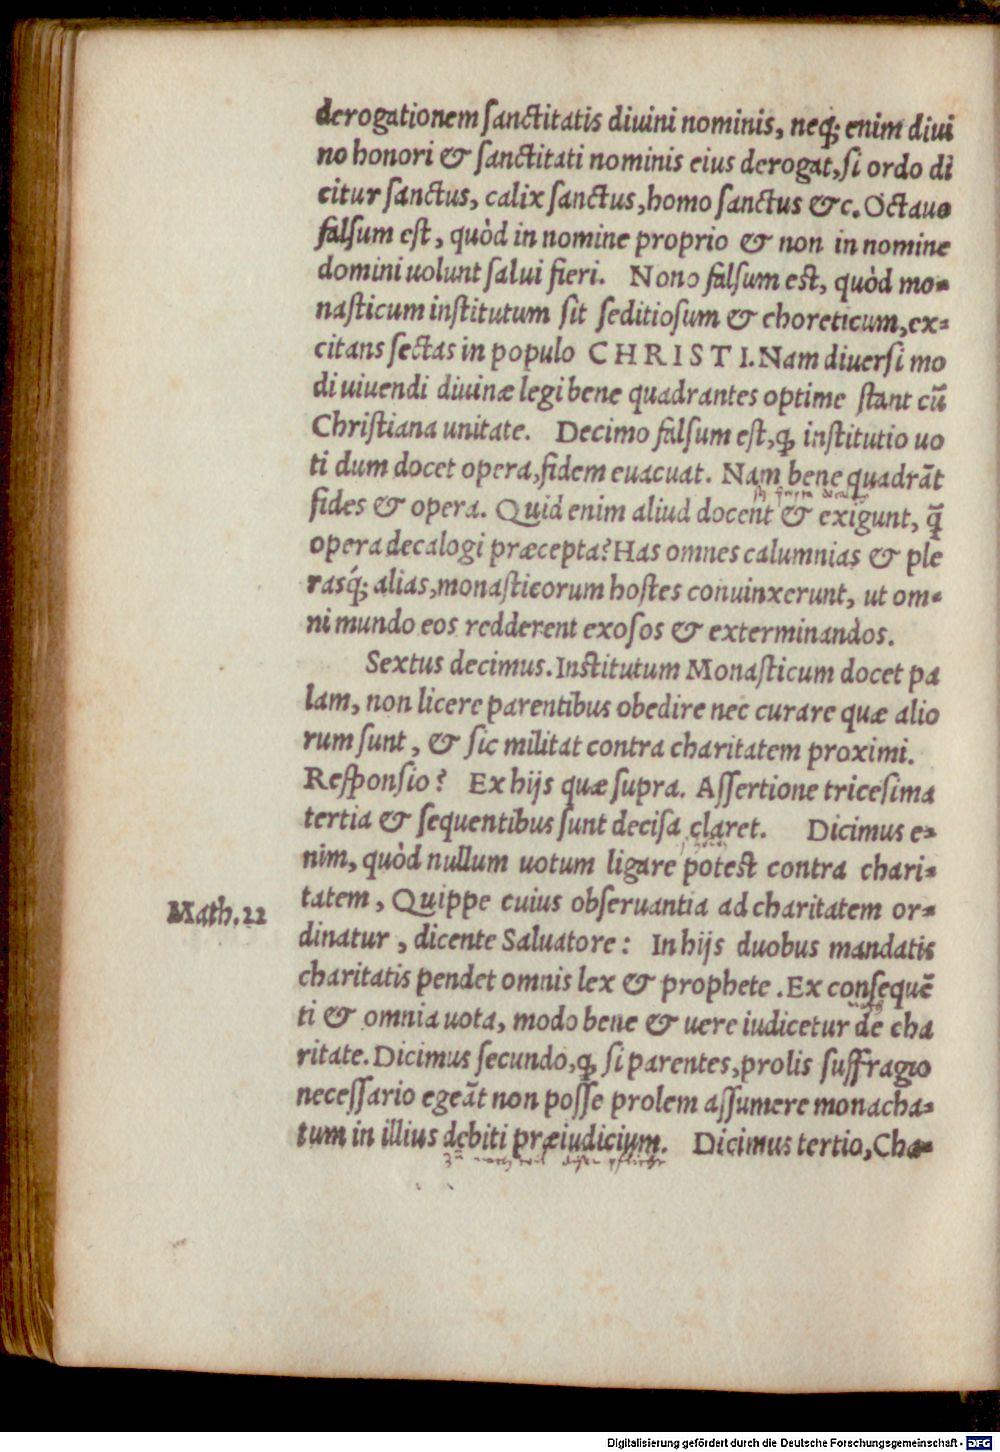 derogationem ſanctitatis diuini nominis, neq; enim diui
no honori & ſanctitati nominis eius derogat, ſi ordo di
citur ſanctus, calix ſanctus, homo ſanctus &c. Octauo
falſum eſt, quòd in nomine proprio & non in nomine
domini uolunt ſalui fieri. Nono falſum eſt, quòd mo-
naſticum inſtitutum ſit ſeditioſum & choreticum, ex-
citans ſectas in populo CHRISTI. Nam diuerſi mo
di uiuendi diuinæ legi bene quadrantes optime ſtant cū
Chriſtiana unitate. Decimo falſum eſt, ꝙ inſtitutio uo
ti dum docet opera, fidem euacuat. Nam bene quadrāt
fides & opera. Quid enim aliud docent & exigunt, ꝗ̃
opera decalogi præcepta? Has omnes calumnias & ple
rasq́; alias, monaſticorum hoſtes conuinxerunt, ut om-
ni mundo eos redderent exoſos & exterminandos.
Sextus decimus. Inſtitutum Monaſticum docet pa
lam, non licere parentibus obedire nec curare quæ alio
rum ſunt, & ſic militat contra charitatem proximi.
Reſponſio? Ex hijs quæ ſupra. Aſſertione triceſima
tertia & ſequentibus ſunt deciſa claret. Dicimus e-
nim, quòd nullum uotum ligare poteſt contra chari-
Math. 22
tatem, Quippe cuius obſeruantia ad charitatem or-
dinatur, dicente Saluatore: In hijs duobus mandatis
charitatis pendet omnis lex & prophete. Ex conſequē
ti & omnia uota, modo bene & uere iudicetur de cha
ritate. Dicimus ſecundo, ꝙ ſi parentes, prolis ſuffragio
neceſſario egeāt non poſſe prolem aſſumere monacha-
tum in illius debiti præiudicium. Dicimus tertio, Cha-
Digitalisierung gefördert durch die Deutsche Forschungsgemeinschaft - DFG